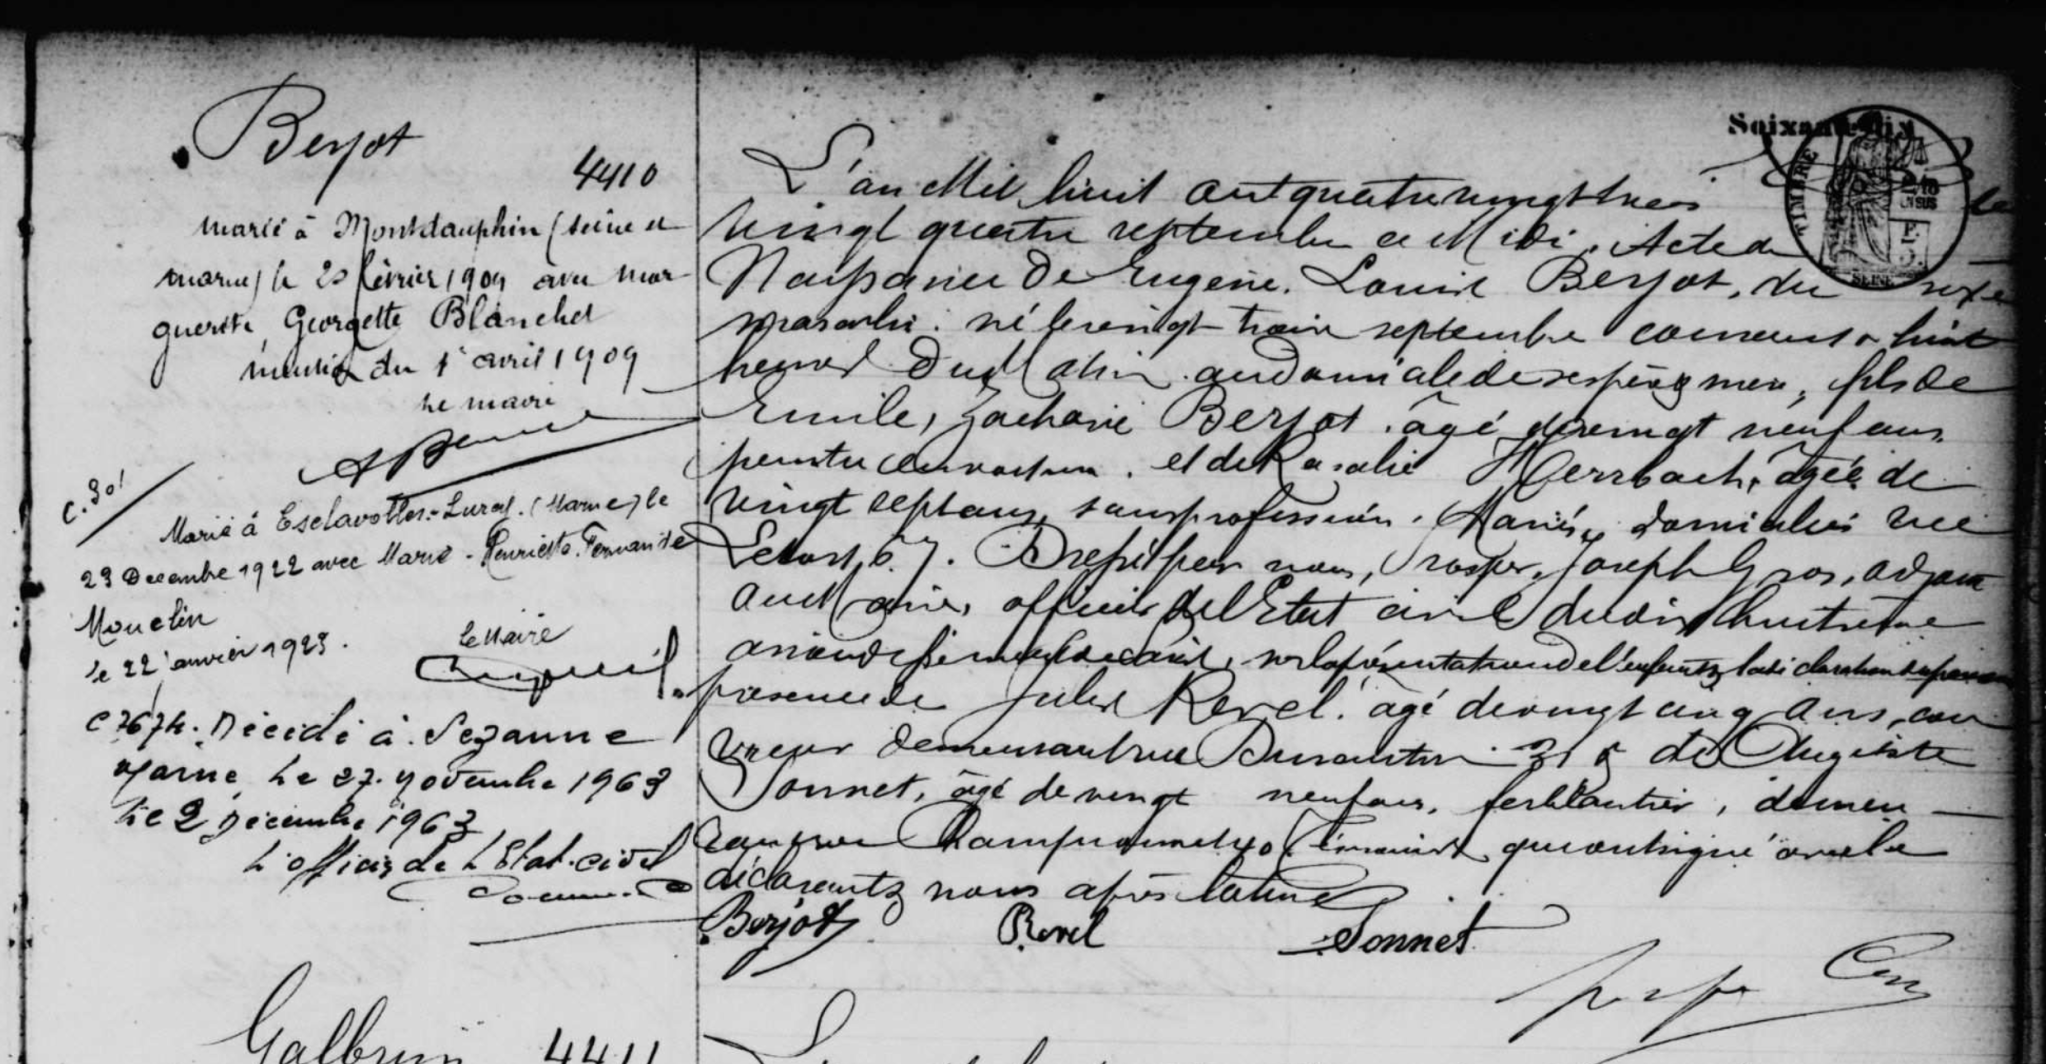 Berjot
4410
marié à Montdauphin (seine et
marne) le 20 février 1909 avec mar
guerite Georgette Blanchet
mention du 1er avril 1909
Le maire
C.301
Marié à Esclavolles-Lurey (Marne) le
23 Decembre 1922 avec Marie-Henriette-Fernande
Mouclin
le 22 janvier 1923.
Le Maire
C 7674. Décédé à Sezanne
Marne le 27 novembre 1963
Le 2 Décembre 1963
L'officier de L'Etat-civil
Soixante-dix
TIMBRE
SEINE
L'an Mil huit cent quatre vingt trois le
vingt quatre septembre à Midi. Acte de
Naissance de Eugène Louis Berjot, du sexe
masculin né le vingt trois septembre courant à huit
heures du Matin au domicile de ses père & mère, fils de
Emile, Zacharie Berjot âgé de vingt neuf ans
peintre et de Rosalie Herrbach, âgée de
vingt sept ans, sans profession. Mariés, domiciliés rue
Letort 67. Dressé par nous, Prosper, Joseph Gros, adjoint
au Maire, officier de l'Etat civil du dix huitième
arrondissement de Paris, sur la présentation de l'enfant & la déclaration du père en
présence de Jules Revel âgé de vingt cinq ans, cou
vreur demeurant rue Durantin 31 & de Auguste
Sonnet, âgé de vingt neuf ans, ferblantier, demeu
rant rue Championnet témoins qui ont signé avec le
déclarant & nous après lecture
Berjot Revel Sonnet
Galbrun 4411